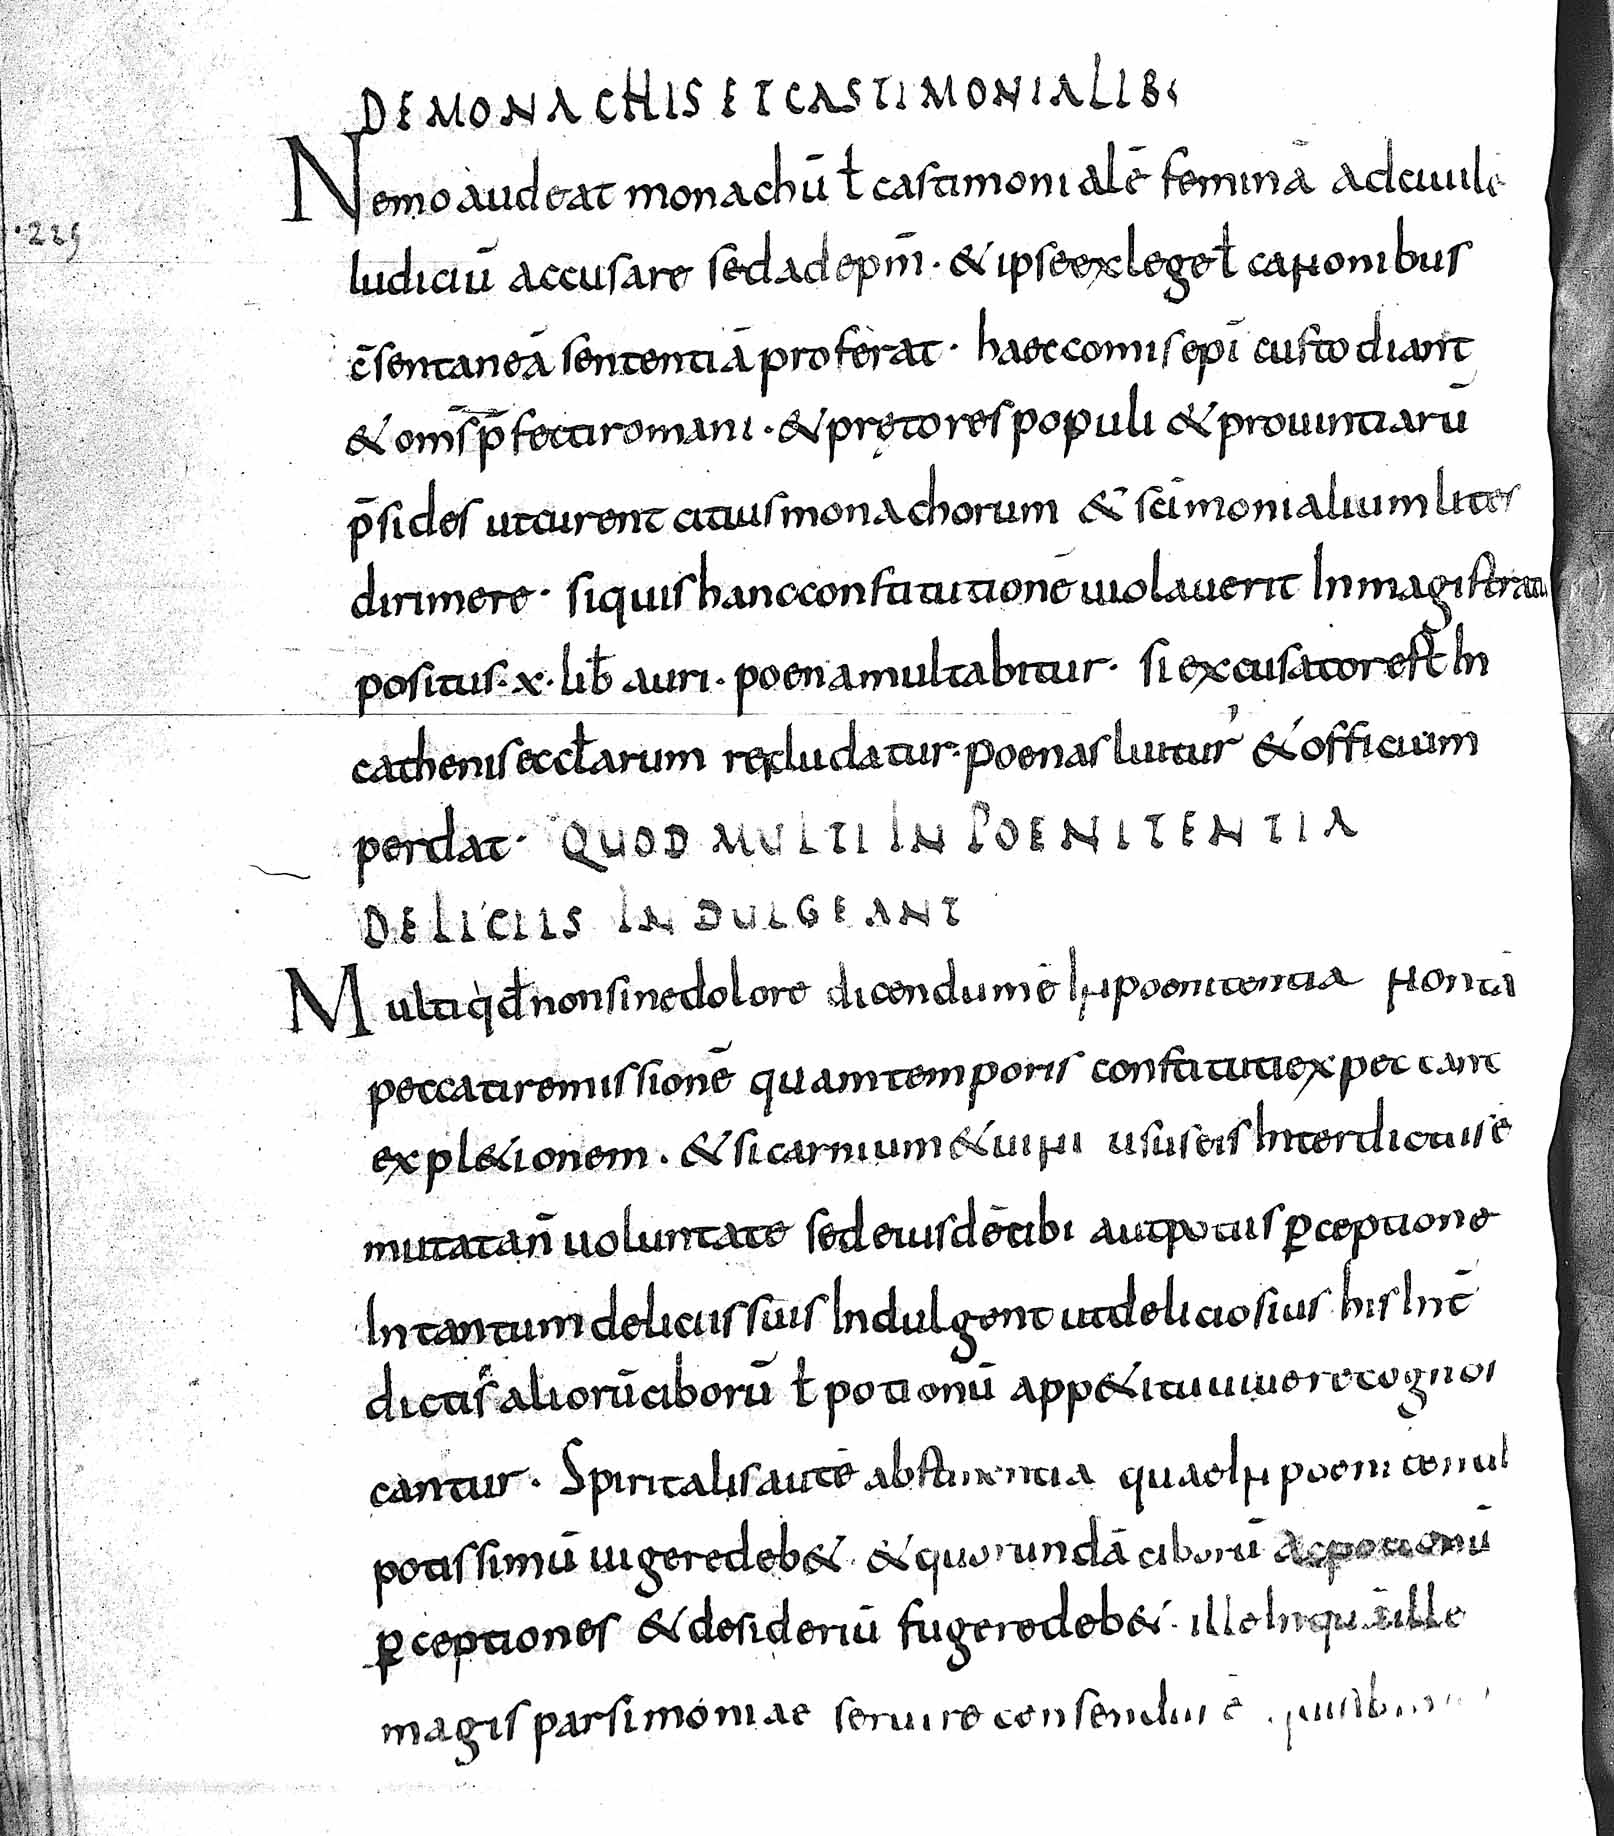 DE MONACHIS ET CASTIMONIALIB;
Nemo audeat monachū ł castimonialē feminā ad ciuile
225
Iudiciū accusare sed ad ep̄m · & ipse ex lege ł canonibus
c̄sentaneā sententiā proferat · haec omīs ep̄i custodiant
& om̄s p̄fecti romani · & pręto res populi & prouintiarū
p̄sides ut curent citius monachorum & sc̄imonialium lites
dirimere · si quis hanc constitutionē uiolauerit In magistratu
positus · x · lib̄ auri · poena multabitur · si excusator est In
cathenis eccłarum recludatur · poenas luitur' & officium
perdat · QUOD MULTI IN POENITENTIA
DELICIIS INDULGEANT
Multi q̇d̄ non sine dolore dicendum ē In poenitentia non tā
peccati remissionē quam temporis constituti expectant
expl&ionem · & si carnium & uini usus eis Interdictus ē
mutata n̄ uoluntate sed eiusdē cibi aut potus ꝑceptione
In tantum deliciis suis Indulgent ut deliciosius his Int̄
dictis aliorū ciborū ł potionū app&itu uiuere cognos
cantur · Spiritalis autē abstinentia quae In poenitentib;
potissimū uigere deb& · & quorundā ciborū ac potionū
ꝑceptiones & desideriū fugere deb& · ille Inquā ille
magis parsimoniae seruire consendus ē